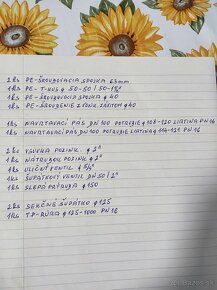 2 KS PE-ŠROUBOVACIA SPOJKA 63mm
1 KS PE-T-KUS φ 50-50 / 50-1½"
1 KS PE-ŠROUBOVACIA SPOJKA φ 40
1 KS PE-ŠROUBENIE Z VONK. ZÁVITOM φ 40
1 KS NAVRTAVACÍ PÁS DN 100 POTRUBIE φ 108-120 LIATINA PN 16
1 KS NAVRTAVACÍ PÁS DN 100 POTRUBIE LIATINA φ 114-121 PN 16
2 KS VSUVKA POZINK. φ 2"
1 KS NÁTRUBOK POZINK φ 2"
1 KS ULIČNÝ VENTIL φ 5/4"
1 KS ŠUPÁTKOVÝ VENTIL DN 50 / 2"
1 KS SLEPÁ PRÍRUBA φ 150
2 KS SEKČNÉ ŠUPÁTKO φ 125
1 KS TP-RÚRA φ 125-1000 PN 16